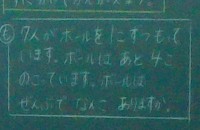 も 7人がボールを1こずつもって
います。ボールは あと 4こ
のこっています。ボールは
ぜんぶで なんこ ありますか。